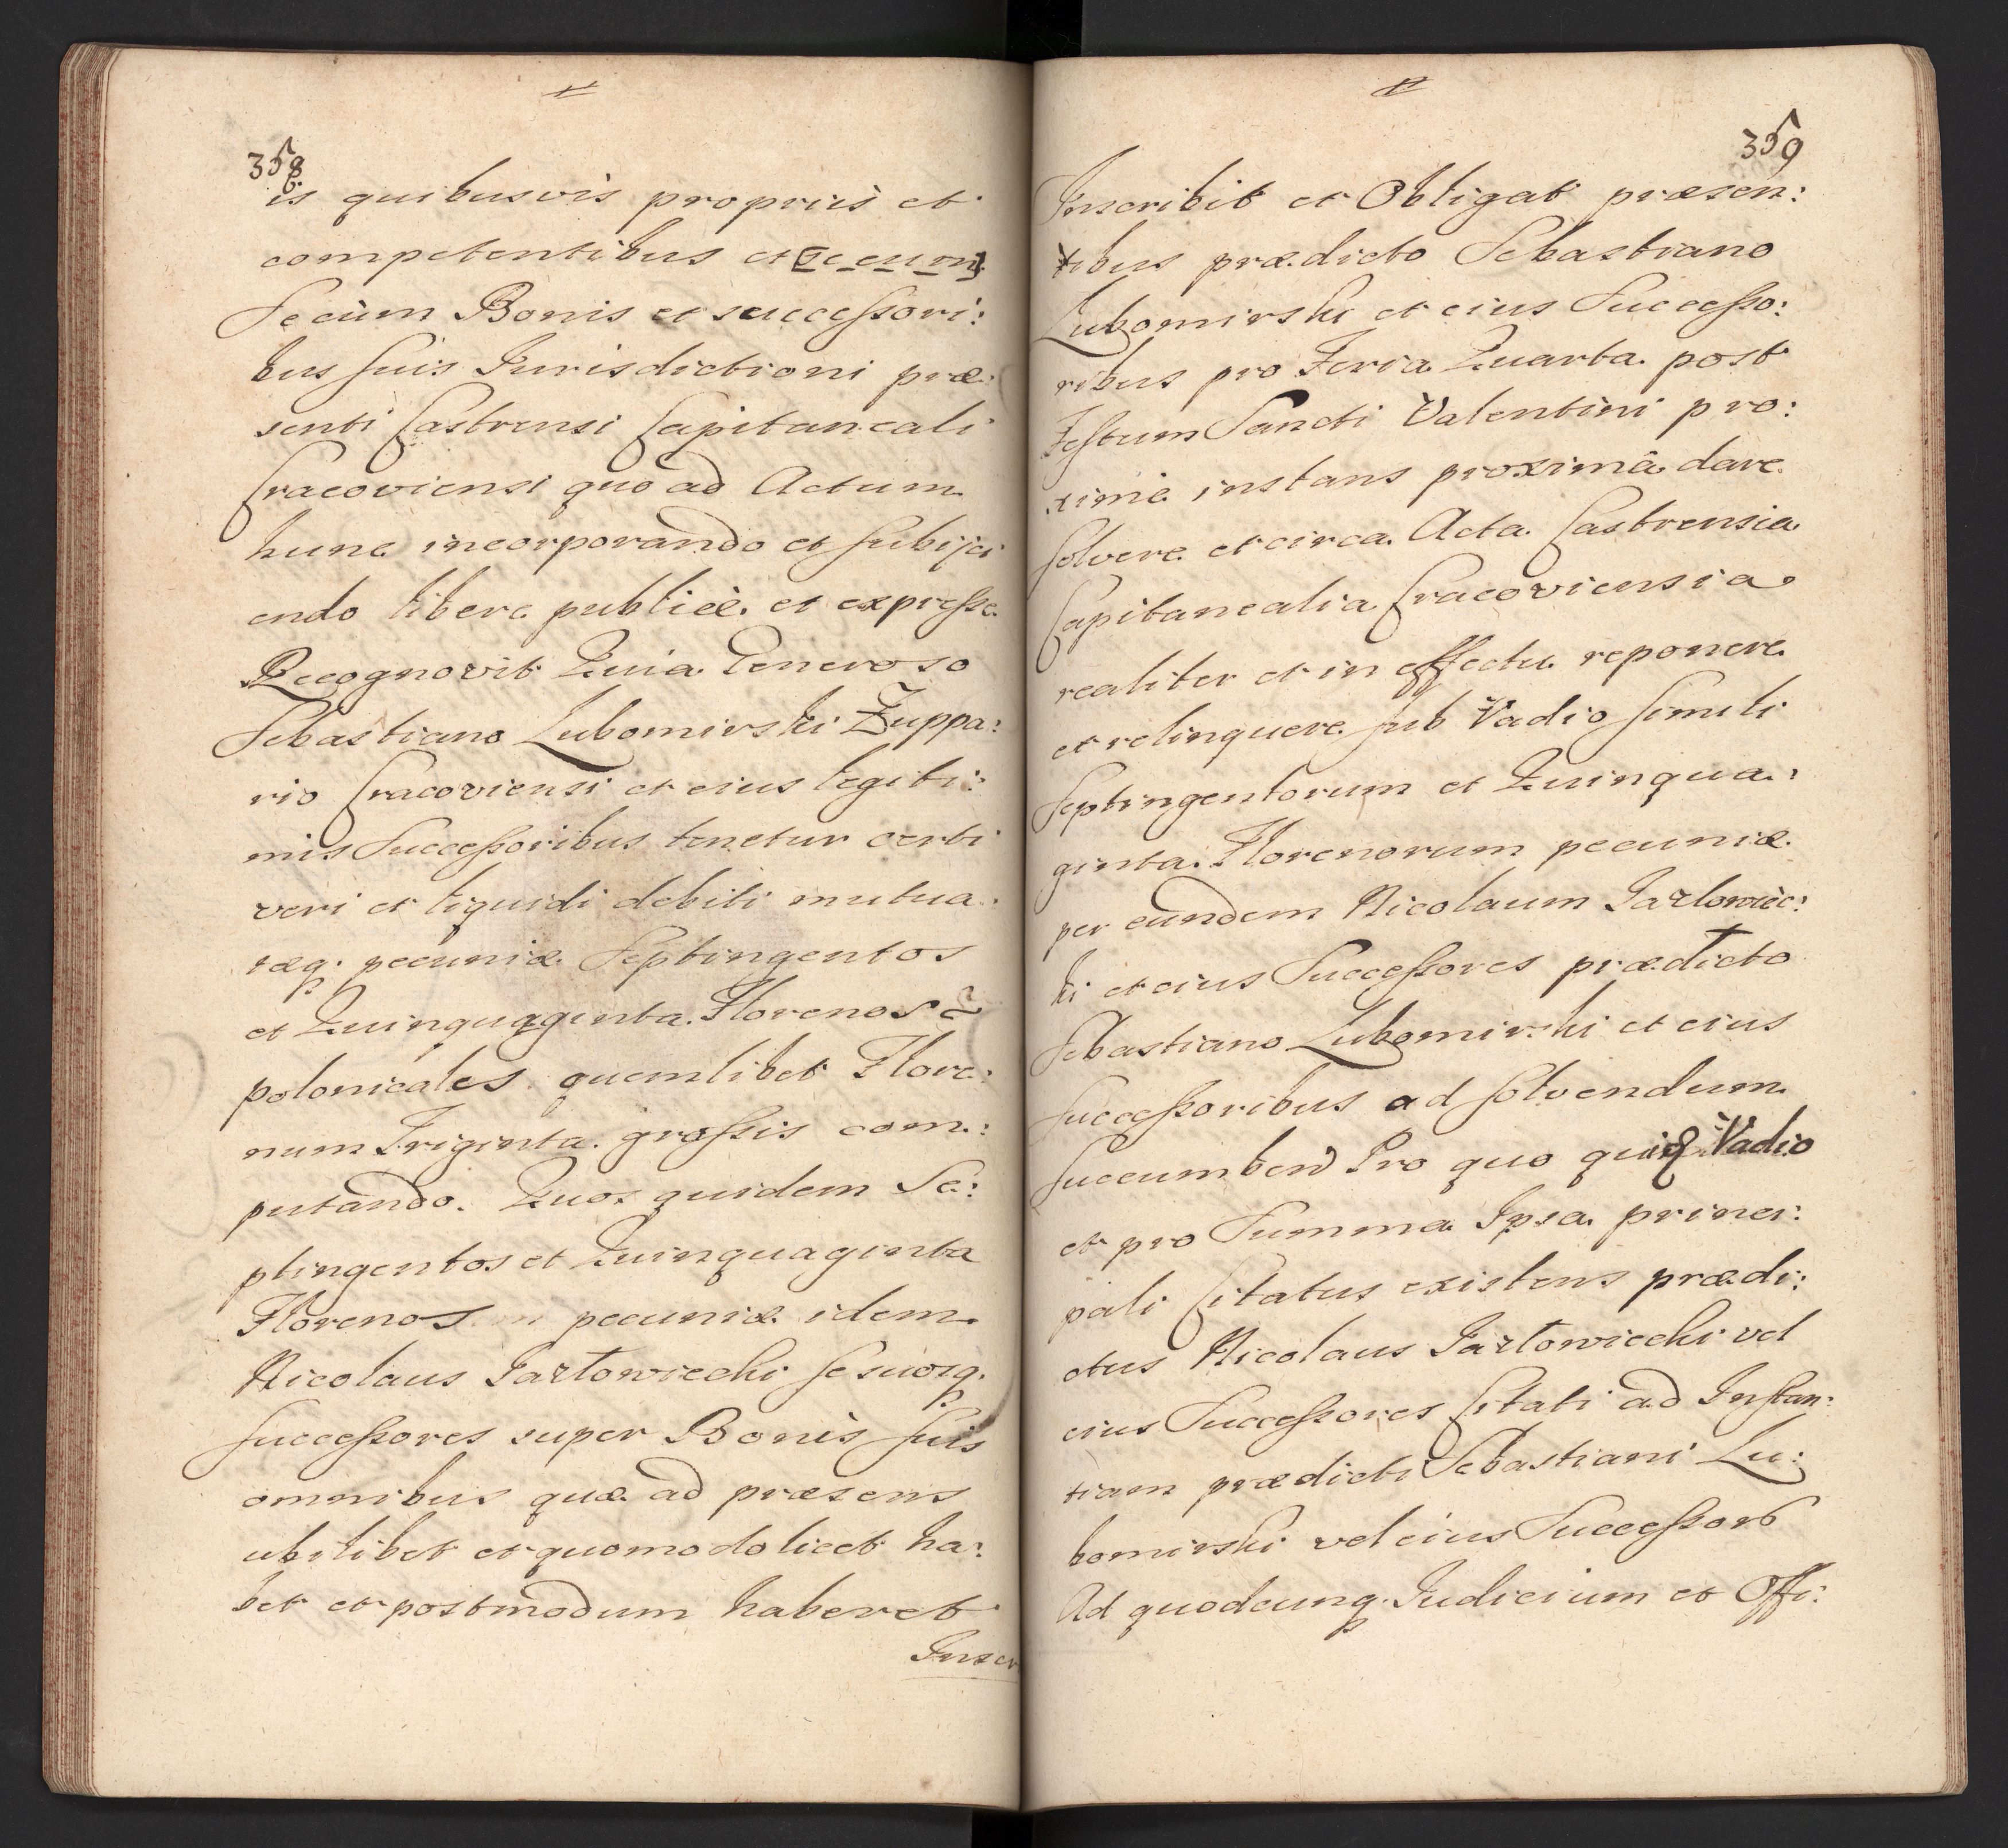 358
is quibusvis propriis et
competentibus et [secum]
Secum Bonis et successori:
bus suis Jurisdictioni præ:
senti Castrensi Capitaneali
Cracoviensi quo ad Actum
hunc incorporando et subijci
endo libere publicè et expresse
Recognovit Quia Generoso
Sebastiano Lubomirski Zuppa:
rio Cracoviensi et eius legiti:
mis Successoribus tenetur certi
veri et liquidi debiti mutua:
tæq. pecuniæ Septingentos
et Quinquaginta Florenos
polonicales quemlibet Flore:
num Triginta grossis com:
putando. Quos quidem Se:
ptingentos et Quinquaginta
Florenos pecuniæ idem
Nicolaus Jazłowiecki se suosq.
successores super Bonis suis
omnibus quæ ad præsens
ubilibet et quomodolicet ha:
bet et postmodum haberet
Inscr
359
Inscribit et Obligat præsen:
tibus prædicto Sebastiano
Lubomirski et eius Successo:
ribus pro Feria Quarta post
Festum Sancti Valentini pro:
xime instans proximâ dare
solvere et circa Acta Castrensia
Capitanealia Cracoviensia
realiter et in effectu reponere
et relinquere sub Vadio simili
Septingentorum et Quinqua:
ginta Florenorum pecuniæ
per eundem Nicolaum Jazlowiec:
ki et eius Successores prædicto
Sebastiano Lubomirski et eius
successoribus ad solvendum
succumben Pro quo quidem Vadio
et pro Summa Ipsa princi:
pali Citatus existens prædi:
ctus Nicolaus Jazłowiecki vel
eius Successores Citati ad Instan:
tiam prædicti Sebastiani Lu:
bomirski vel eius Successorb
Ad quodcunq. Judicium et Offi: